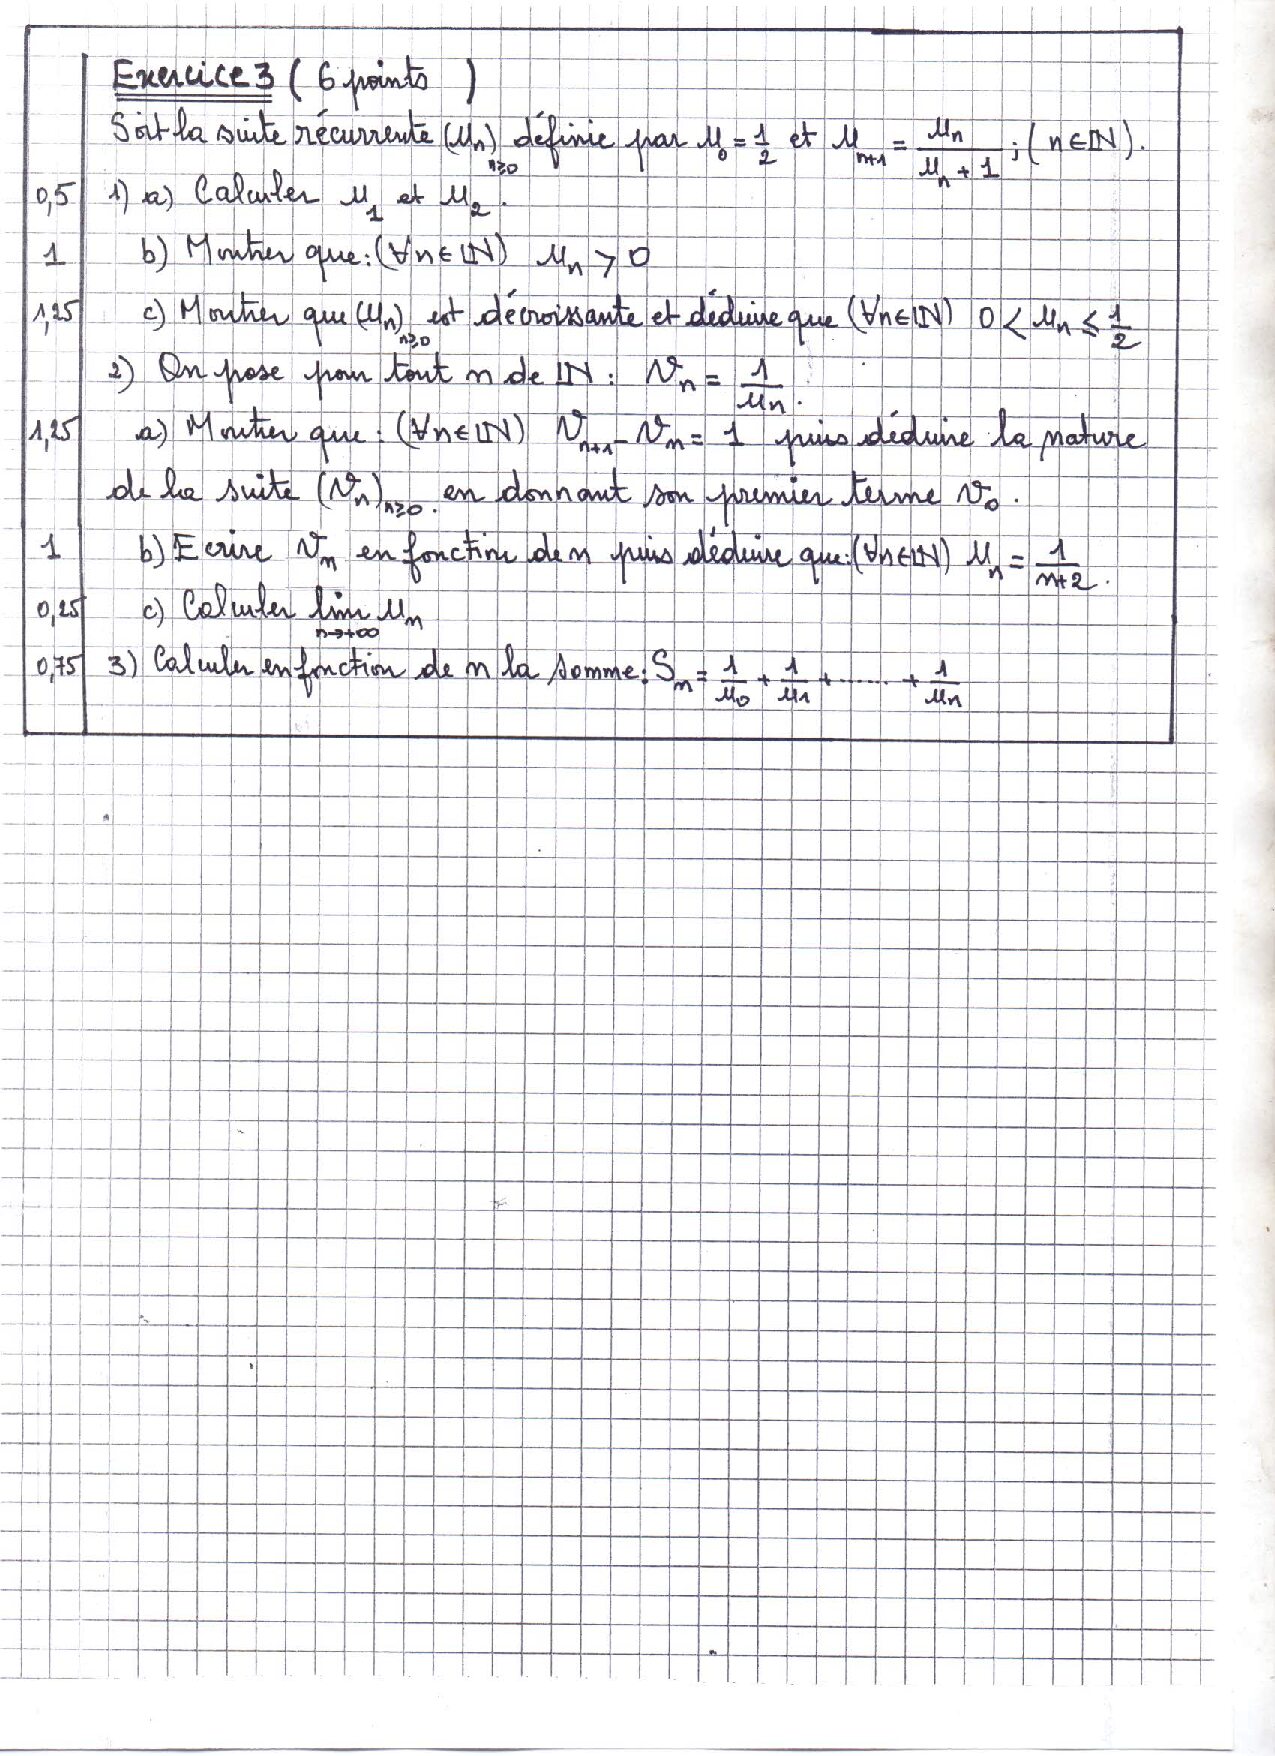 Exercice 3 ( 6 points )
Soit la suite récurrente (Un)n≥0 définie par U0 = 1/2 et Un+1 = Un/(Un + 1) ; ( n ∈ IN ).
0,5 1) a) Calculer U1 et U2.
1 b) Montrer que : (∀n ∈ IN) Un > 0
1,25 c) Montrer que (Un)n≥0 est décroissante et déduire que (∀n ∈ IN) 0 < Un ≤ 1/2
2) On pose pour tout n de IN : Vn = 1/Un.
1,25 a) Montrer que : (∀n ∈ IN) Vn+1 - Vn = 1 puis déduire la nature
de la suite (Vn)n≥0. en donnant son premier terme V0.
1 b) Ecrire Vn en fonction de n puis déduire que : (∀n ∈ IN) Un = 1/(n+2).
0,25 c) Calculer lim n→+∞ Un
0,75 3) Calculer en fonction de n la somme : Sn = 1/U0 + 1/U1 + ...... + 1/Un